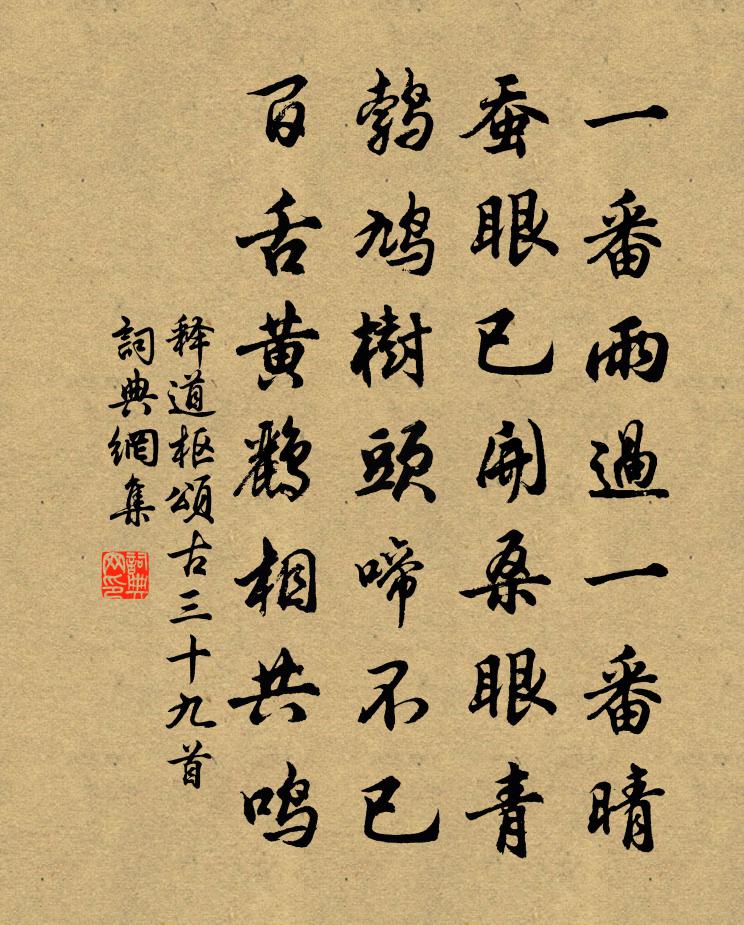 一番雨過一番晴
蚕眼已開桑眼青
鹁鸠樹頭啼不已
百舌黄鹂相共鸣
释道枢頌古三十九首
詞典網集
詞典网印